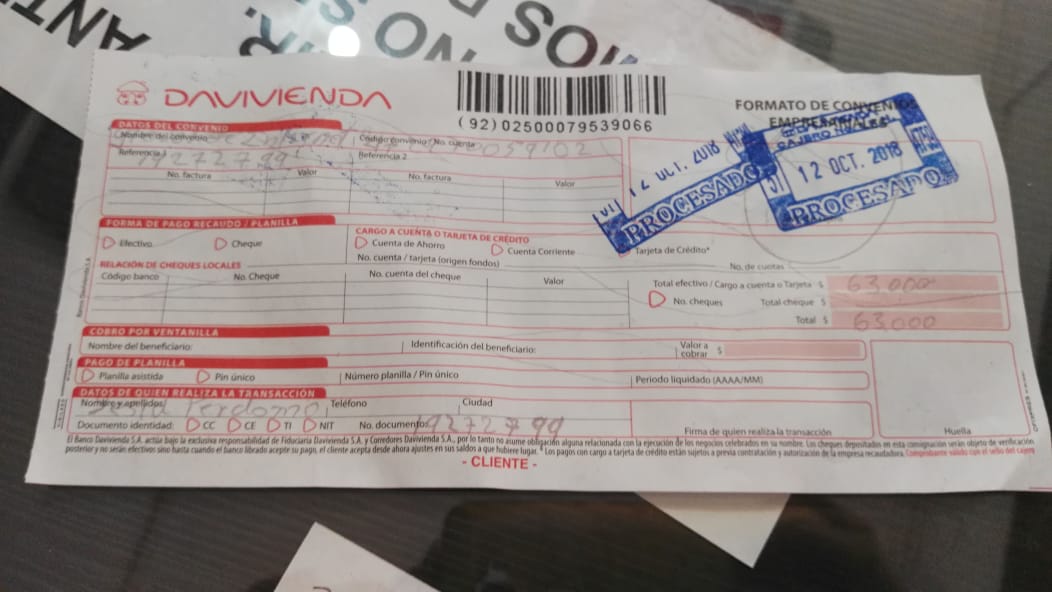 DAVIVIENDA
(92)02500079539066
FORMATO DE CONVENIOS
EMPRESARIALES
DATOS DEL CONVENIO
Nombre del convenio
Código convenio / No. cuenta
Referencia 1
Referencia 2
No. factura Valor No. factura Valor
12 OCT. 2018
PROCESADO
12 OCT. 2018
PROCESADO
FORMA DE PAGO RECAUDO / PLANILLA
Efectivo Cheque
CARGO A CUENTA O TARJETA DE CRÉDITO
Cuenta de Ahorro Cuenta Corriente Tarjeta de Crédito*
No. cuenta / tarjeta (origen fondos) No. de cuotas
RELACIÓN DE CHEQUES LOCALES
Código banco No. Cheque No. cuenta del cheque Valor
Total efectivo / Cargo a cuenta o Tarjeta $ 63,000
No. cheques Total cheque $
Total $ 63,000
COBRO POR VENTANILLA
Nombre del beneficiario: Identificación del beneficiario: Valor a cobrar $
PAGO DE PLANILLA
Planilla asistida Pin único Número planilla / Pin único Periodo liquidado (AAAA/MM)
DATOS DE QUIEN REALIZA LA TRANSACCIÓN
Nombre y apellidos Perdomo Teléfono Ciudad
Documento identidad: CC CE TI NIT No. documento: 19272799
Firma de quien realiza la transacción Huella
El Banco Davivienda S.A. actúa bajo la exclusiva responsabilidad de Fiduciaria Davivienda S.A. y Corredores Davivienda S.A., por lo tanto no asume obligación alguna relacionada con la ejecución de los negocios celebrados en su nombre. Los cheques depositados en esta consignación serán objeto de verificación
posterior y no serán efectivos sino hasta cuando el banco librado acepte su pago, el cliente acepta desde ahora ajustes en sus saldos a que hubiere lugar. * Los pagos con cargo a tarjeta de crédito están sujetos a previa contratación y autorización de la empresa recaudadora. Comprobante válido con el sello del cajero
- CLIENTE -